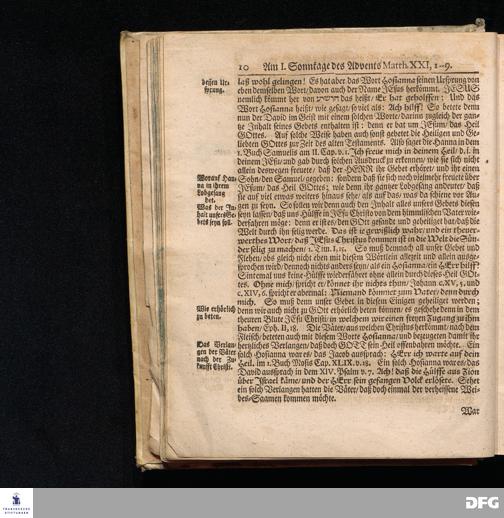 10 Am I. Sonntage des Advents Matth. XXI, 1-9.
dessen Ur-
sprung.
laß wohl gelingen! Es hat aber das Wort Hosianna seinen Ursprung von
eben demselben Wort/ davon auch der Name JEsus herkommt. JESUS
nemlich kommt her von das heißt/ Er hat geholffen: Und das
Wort Hosianna heißt/ wie gesagt/ so viel als: Ach hilff! So betete denn
nun der David im Geist mit einem solchen Worte/ darinn zugleich der gan-
tze Inhalt seines Gebets enthalten ist: denn er bat um JEsum/ das Heil
GOttes. Auf solche Weise haben auch sonst gebetet die Heiligen und Ge-
liebten GOttes zur Zeit des alten Testaments. Also saget die Hanna in dem
1. Buch Samuelis am II. Cap. v. 1. Ich freue mich in deinem Heil/ d. i. in
deinem JEsu/ und gab durch solchen Ausdruck zu erkennen/ wie sie sich nicht
allein deswegen freute/ daß der HERR ihr Gebet erhöret/ und ihr einen
Worauf Han-
na in ihrem
Lobgesang
Was der In-
halt unsers Ge-
bets seyn soll.
Sohn/ den Samuel/ gegeben: sondern daß sie sich noch vielmehr freuete über
JEsum/ das Heil GOttes; wie denn ihr gantzer Lobgesang andeutet/ daß
sie auf viel etwas weiters hinaus sehe/ als auf das/ was da schiene vor Au-
gen zu seyn. So sollen wir denn auch den Inhalt alles unsers Gebets diesen
seyn lassen/ daß uns Hülffe in JEsu Christo von dem himmlischen Vater wie-
derfahren möge: denn er ist es/ den GOtt gesandt und geheiliget hat/ daß die
Welt durch ihn selig werde. Das ist ie gewißlich wahr/ und ein theuer-
werthes Wort/ daß JEsus Christus kommen ist in die Welt die Sün-
der selig zu machen/ 1. Tim. I, 15. So muß demnach all unser Gebet und
Flehen/ obs gleich nicht eben mit diesem Wörtlein allezeit und allein ausge-
sprochen wird/ dennoch nichts anders seyn/ als ein Hosianna/ ein HErr hilff!
Sintemal uns keine Hülffe wiederfähret ohne allein durch dieses Heil GOt-
tes. Ohne mich/ spricht er/ könnet ihr nichts thun/ Johan. c. XV, 5. und
c. XIV, 6. spricht er abermal: Niemand kömmet zum Vater/ denn durch
Wie erhörlich
zu beten.
mich. So muß denn unser Gebet in diesem Einigen geheiliget werden;
denn wie auch nicht zu GOtt erhörlich beten können/ es geschehe denn in dem
theuren Blute JEsu Christi/ in welchem wir einen freyen Zugang zu ihm
haben/ Eph. II, 18. Die Väter/ aus welchen Christus herkommt/ nach dem
Das Verlan-
gen der Väter
nach der Zu-
kunfft Christi.
Fleisch/ beteten auch mit diesem Worte Hosianna/ und bezeugeten damit ihr
hertzliches Verlangen/ daß doch GOTT sein Heil offenbahren möchte. Ein
solch Hosianna war es/ das Jacob aussprach: HErr ich warte auf dein
Heil, im 1. Buch Mosis Cap. XLIX. v. 18. Ein solch Hosianna war es/ das
David aussprach in dem XIV. Psalm v. 7. Ach! daß die Hülffe aus Zion
über Israel käme/ und der HErr sein gefangen Volck erlösete. Sehet
ein solch Verlangen hatten die Väter/ daß doch einmal der verheissene Wei-
bes-Saamen kommen möchte.
War
FRANCKESCHE
STIFTUNGEN
DFG